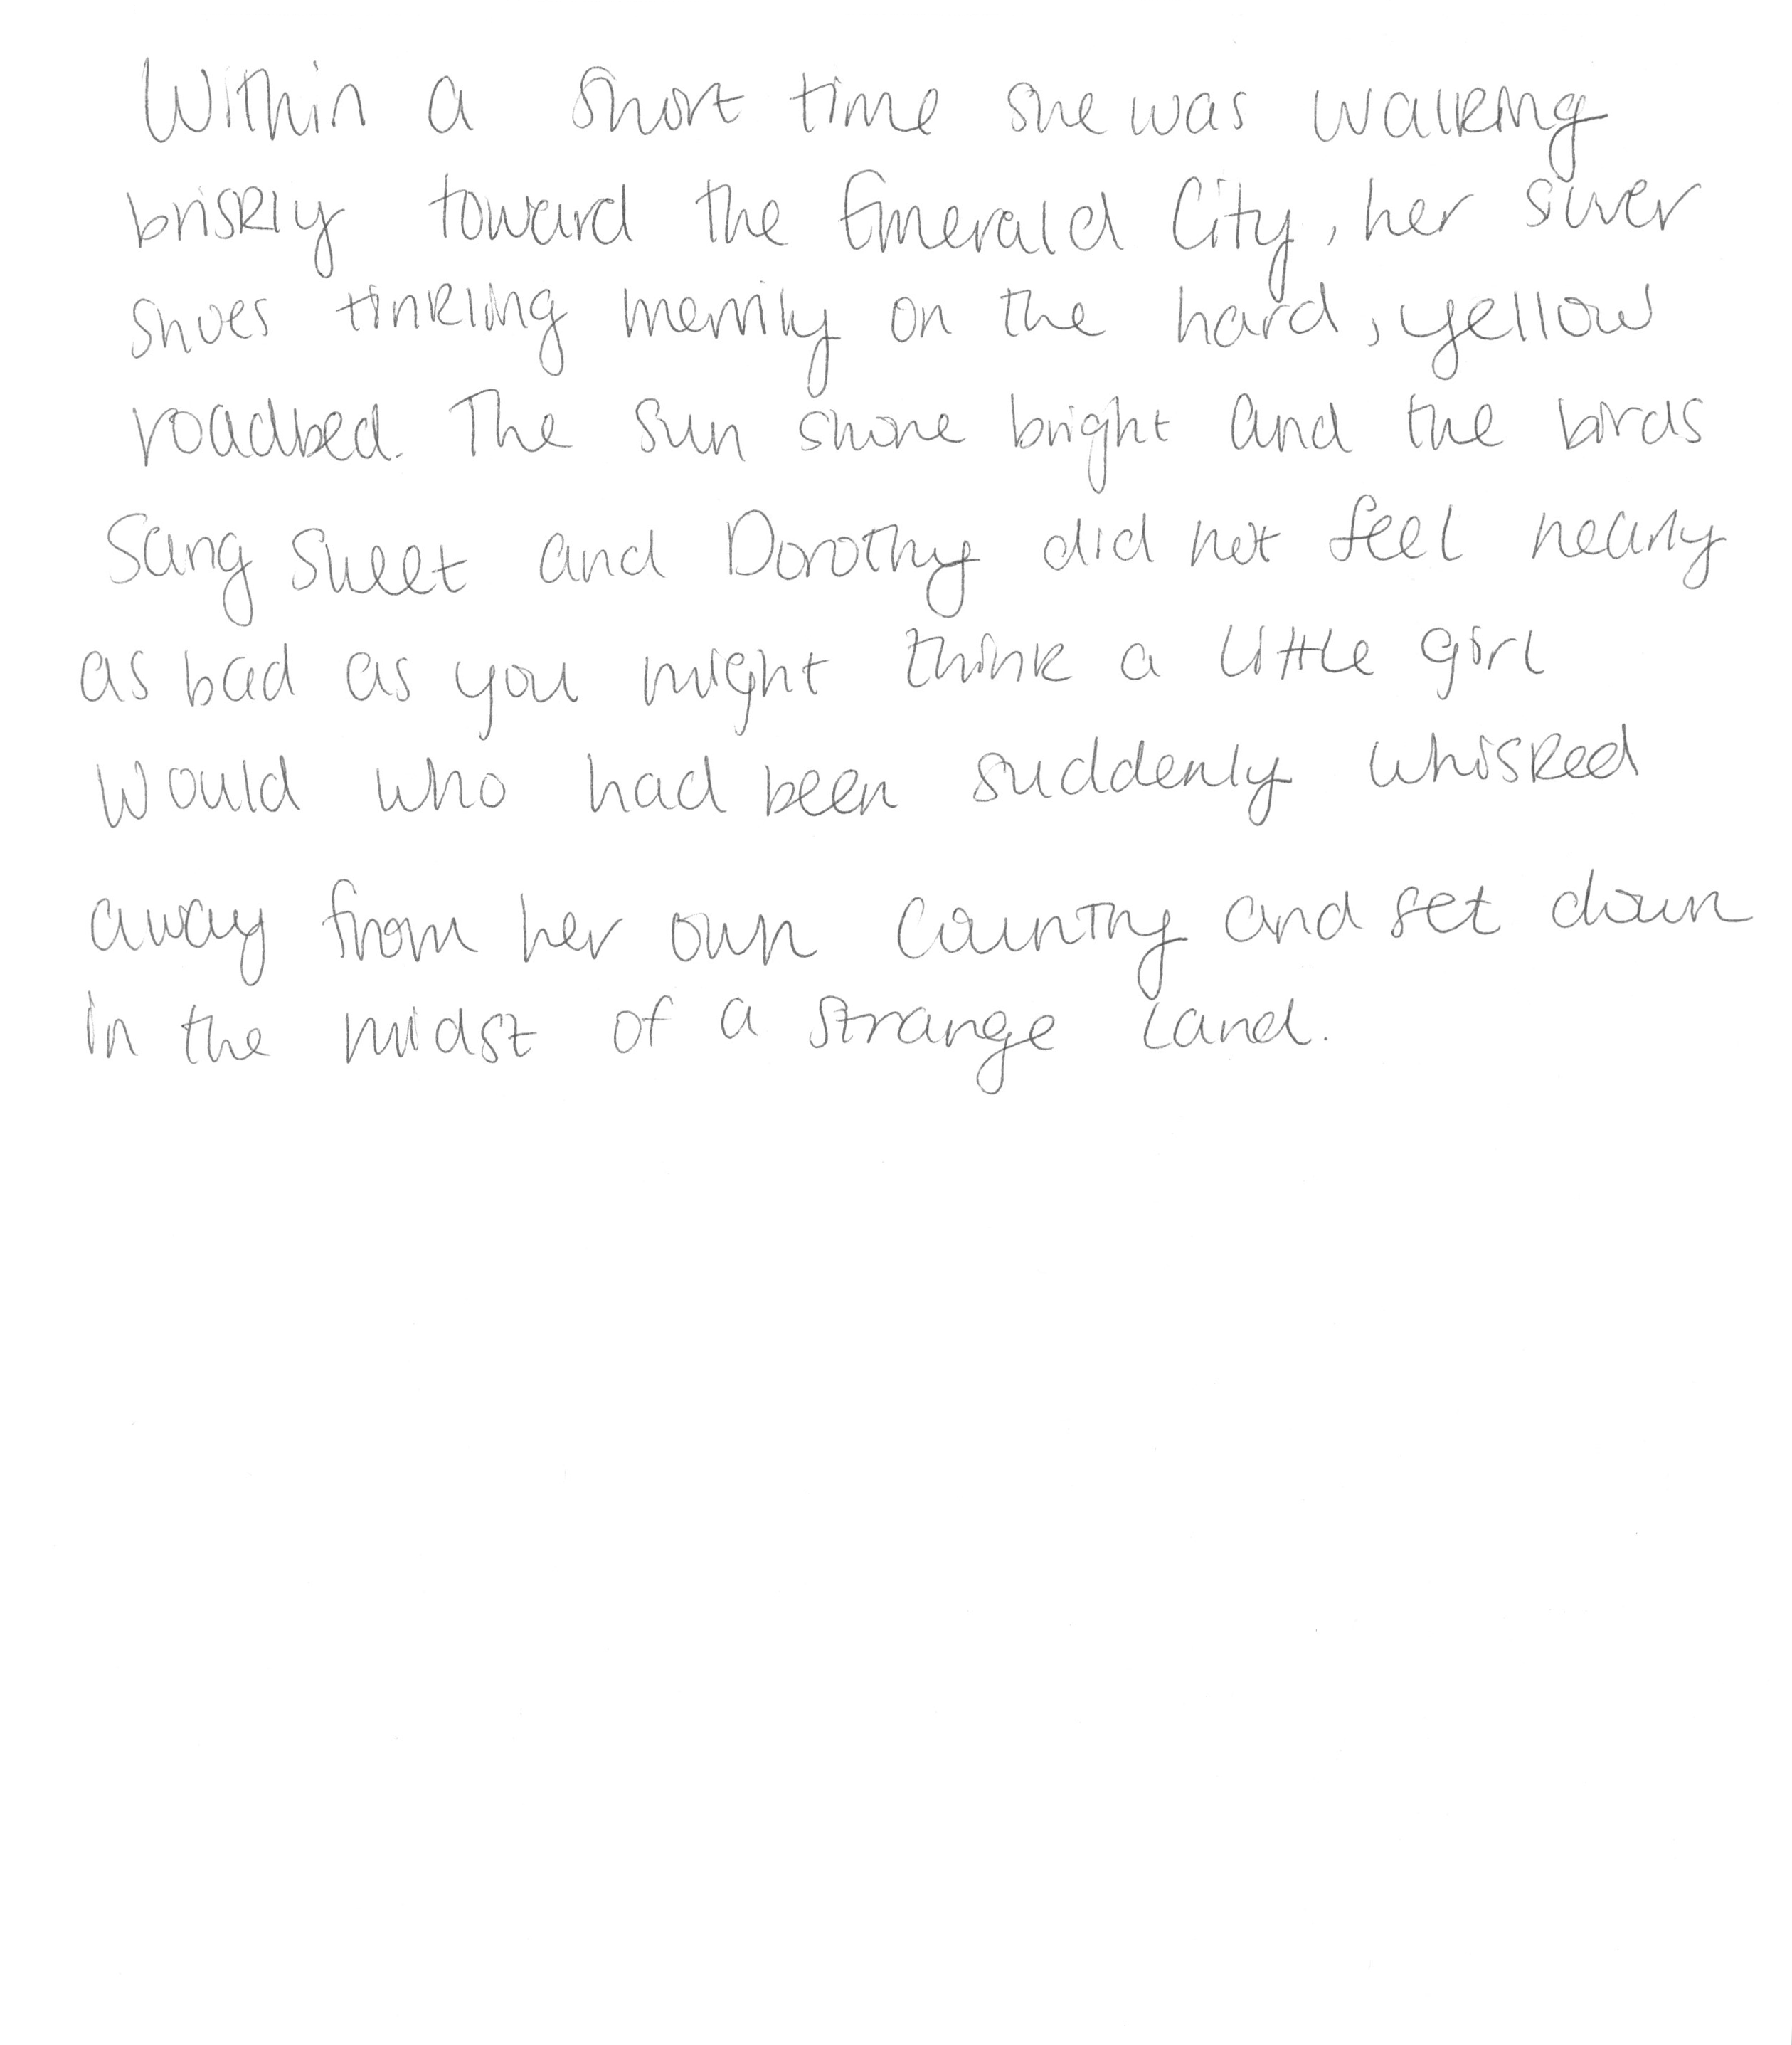 Within a short time she was walking
briskly toward the Emerald City, her silver
shoes tinkling merrily on the hard, yellow
roadbed. The sun shone bright and the birds
sang sweet and Dorothy did not feel nearly
as bad as you might think a little girl
would who had been suddenly whisked
away from her own country and set down
in the midst of a strange land.